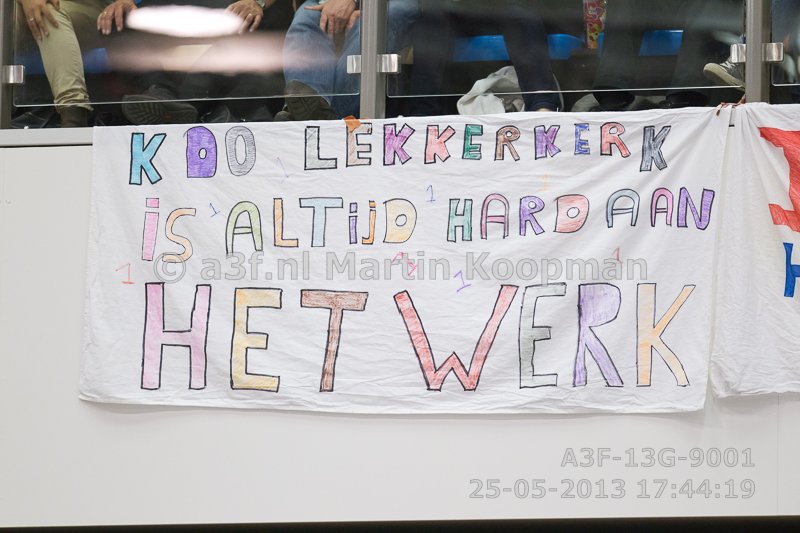 KDO LEKKERKERK
iS ALTijD HARD AAN
© a3f.nl Martin Koopman
HET WERK
A3F-13G-9001
25-05-2013 17:44:19